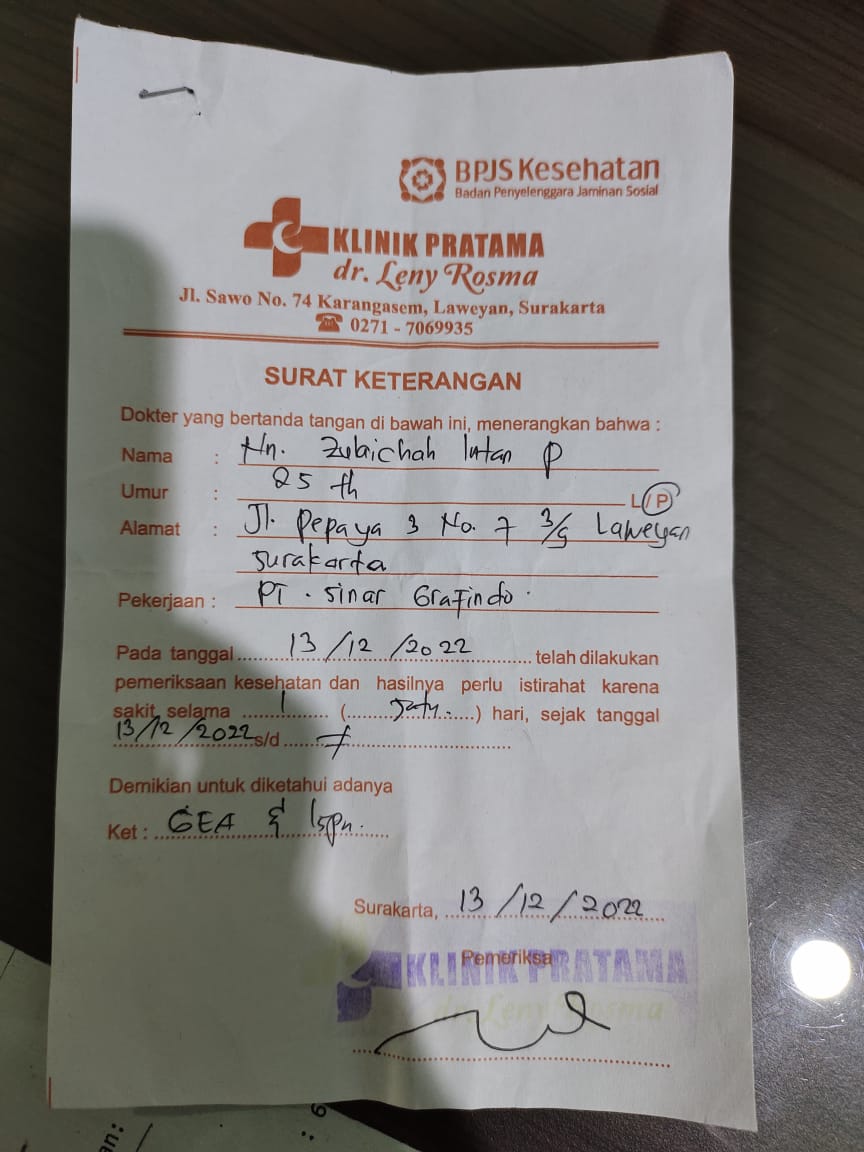 BPJS Kesehatan
Badan Penyelenggara Jaminan Sosial
KLINIK PRATAMA
dr. Leny Rosma
Jl. Sawo No. 74 Karangasem, Laweyan, Surakarta
☎ 0271 - 7069935
SURAT KETERANGAN
Dokter yang bertanda tangan di bawah ini, menerangkan bahwa :
Nama : Nn. Zubaichah Intan P
Umur : 25 th L/P
Alamat : Jl. Pepaya 3 No. 7 3/5 Laweyan
Surakarta
Pekerjaan : PT. Sinar Grafindo.
Pada tanggal 13/12/2022 telah dilakukan
pemeriksaan kesehatan dan hasilnya perlu istirahat karena
sakit selama 1 (satu.) hari, sejak tanggal
13/12/2022 s/d
Demikian untuk diketahui adanya
Ket : GEA & Ispa.
Surakarta, 13/12/2022
Pemeriksa
KLINIK PRATAMA
dr. Leny Rosma